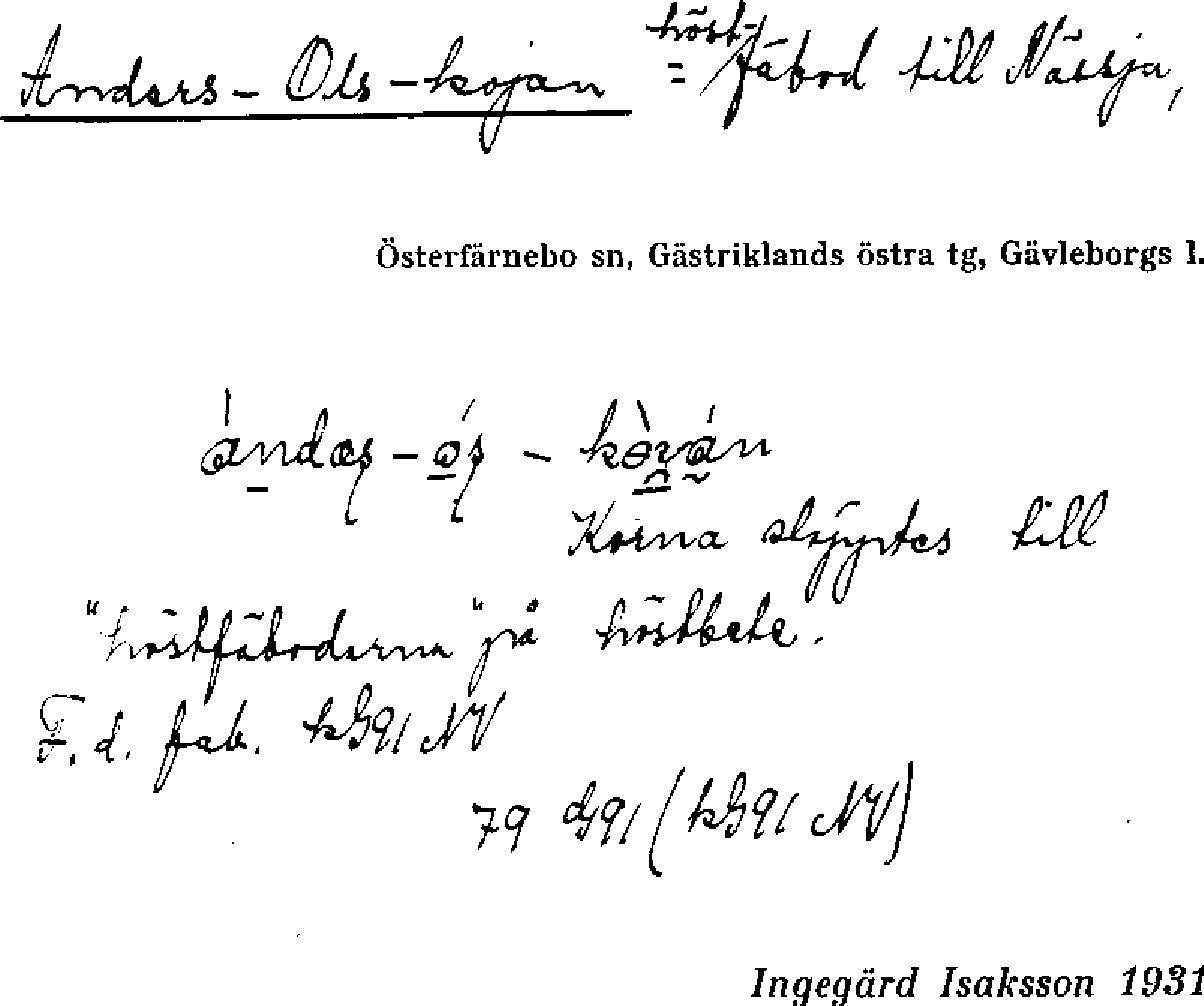 Anders-Ols-kojan = höst-fäbod till Nässja,
Österfärnebo sn, Gästriklands östra tg, Gävleborgs l.
Korna skjutes till
"höstfäboderna" på höstbete.
F.d. fäb. kG91 NV
79 G91 (kG91 NV)
Ingegärd Isaksson 1931